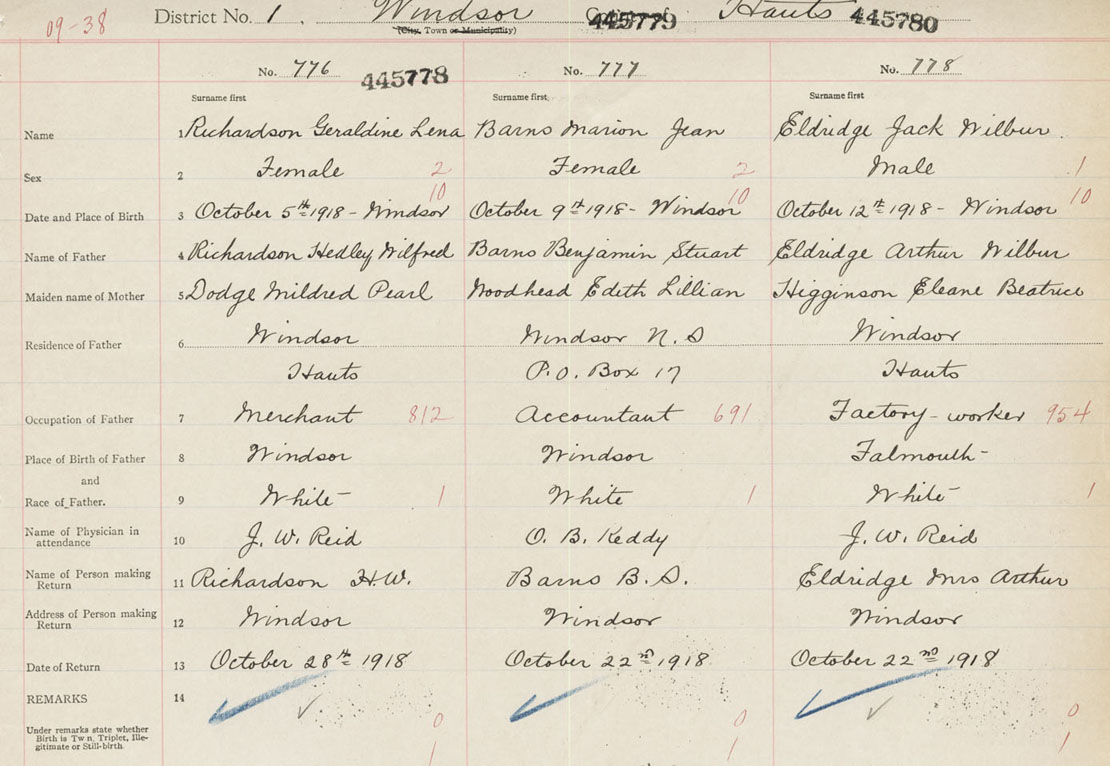 09-38 District No. 1. Windsor 445779 Hants 445780
(City, Town or Municipality)
No. 776 445778 No. 777 No. 778
Surname first Surname first Surname first
Name 1 Richardson Geraldine Lena Barns Marion Jean Eldridge Jack Wilbur.
Sex 2 Female 2 Female 2 Male 1
10 10 10
Date and Place of Birth 3 October 5th 1918 - Windsor October 9th 1918 - Windsor October 12th 1918 - Windsor
Name of Father 4 Richardson Hedley Wilfred Barns Benjamin Stuart Eldridge Arthur Wilbur
Maiden name of Mother 5 Dodge Mildred Pearl Woodhead Edeth Lillian Higginson Eleane Beatrice
Residence of Father 6 Windsor Windsor N.S Windsor
Hants P.O. Box 17 Hants
Occupation of Father 7 Merchant 812 Accountant 691 Factory-worker 954
Place of Birth of Father 8 Windsor Windsor Falmouth-
and
Race of Father. 9 White 1 White 1 White 1
Name of Physician in
attendance 10 J. W. Reid O. B. Keddy J. W. Reid
Name of Person making
Return 11 Richardson H.W. Barns B. S. Eldridge Mrs Arthur
Address of Person making
Return 12 Windsor Windsor Windsor
Date of Return 13 October 28th 1918 October 22nd 1918 October 22nd 1918
REMARKS 14
Under remarks state whether 0 0 0
Birth is Tw n, Triplet, Ille-
gitimate or Still-birth 1 1 1